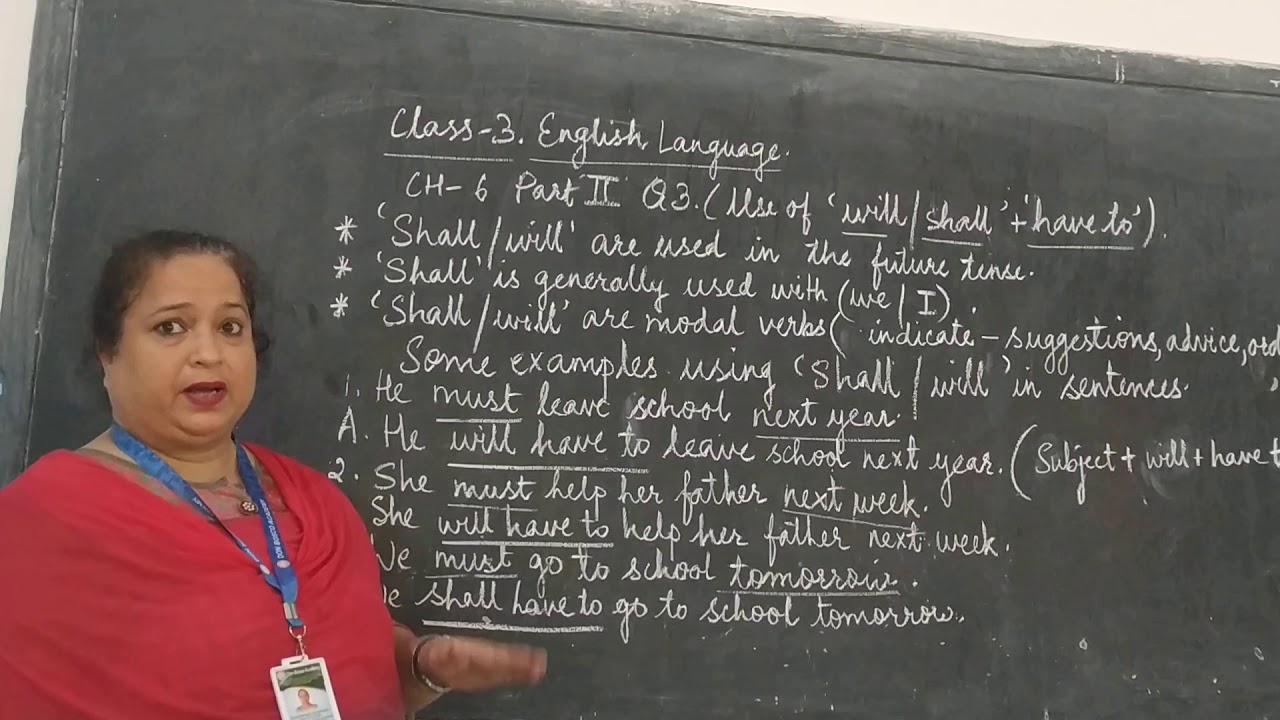 Class-3. English Language.
CH-6 Part II Q3. (Use of 'will/shall' + 'have to').
* 'Shall/will' are used in the future tense.
* 'Shall' is generally used with (we/I).
* 'Shall/will' are modal verbs ( indicate - suggestions, advice,
Some examples using 'Shall/will' in sentences.
1. He must leave school next year.
A. He will have to leave school next year. (Subject + will + have
2. She must help her father next week.
She will have to help her father next week.
must go to school tomorrow.
shall have to go to school tomorrow.
DON BOSCO ACADEMY